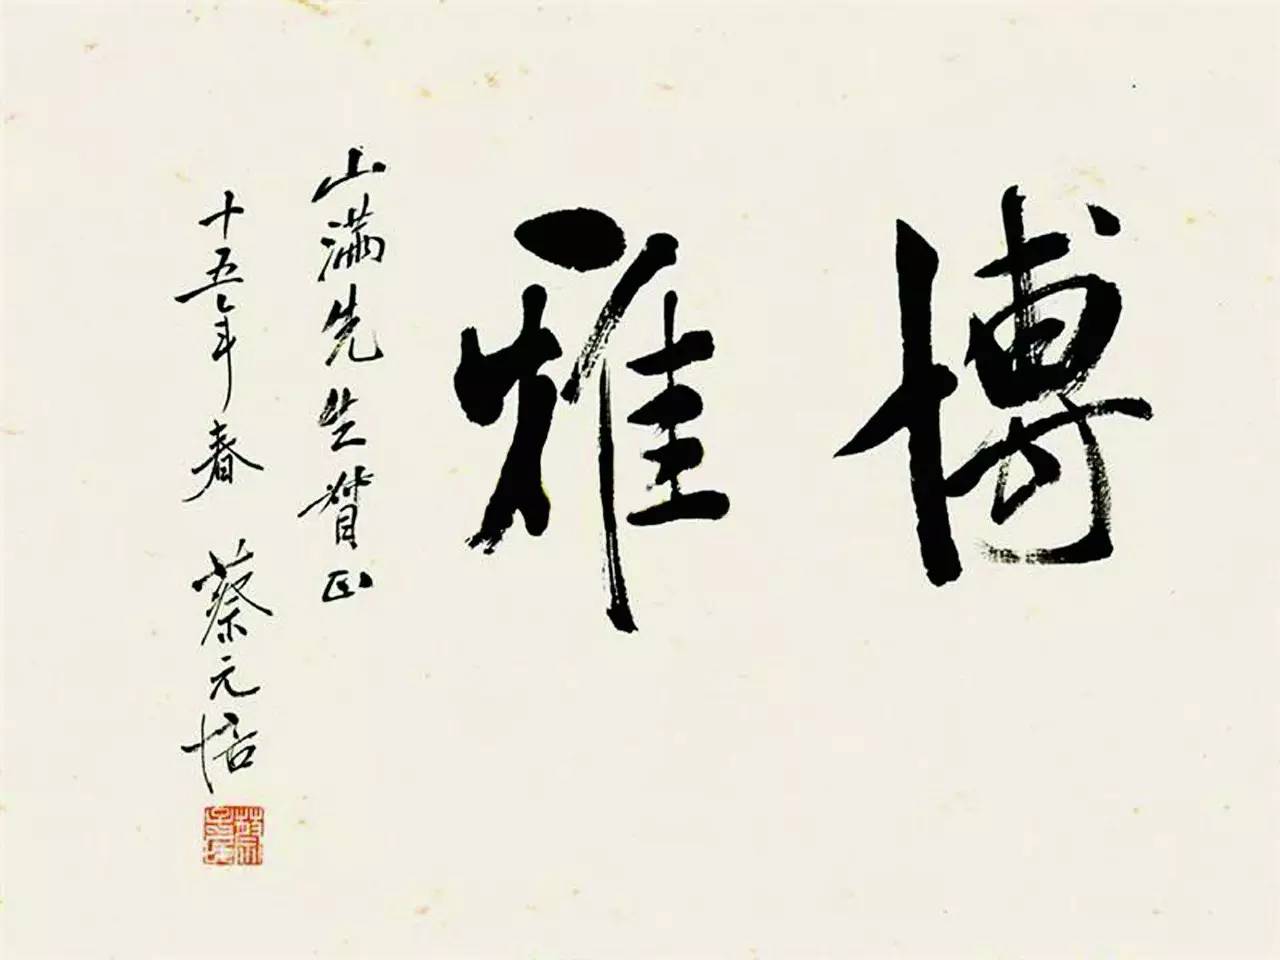 博雅
山滿先生質正
十五年春 蔡元培